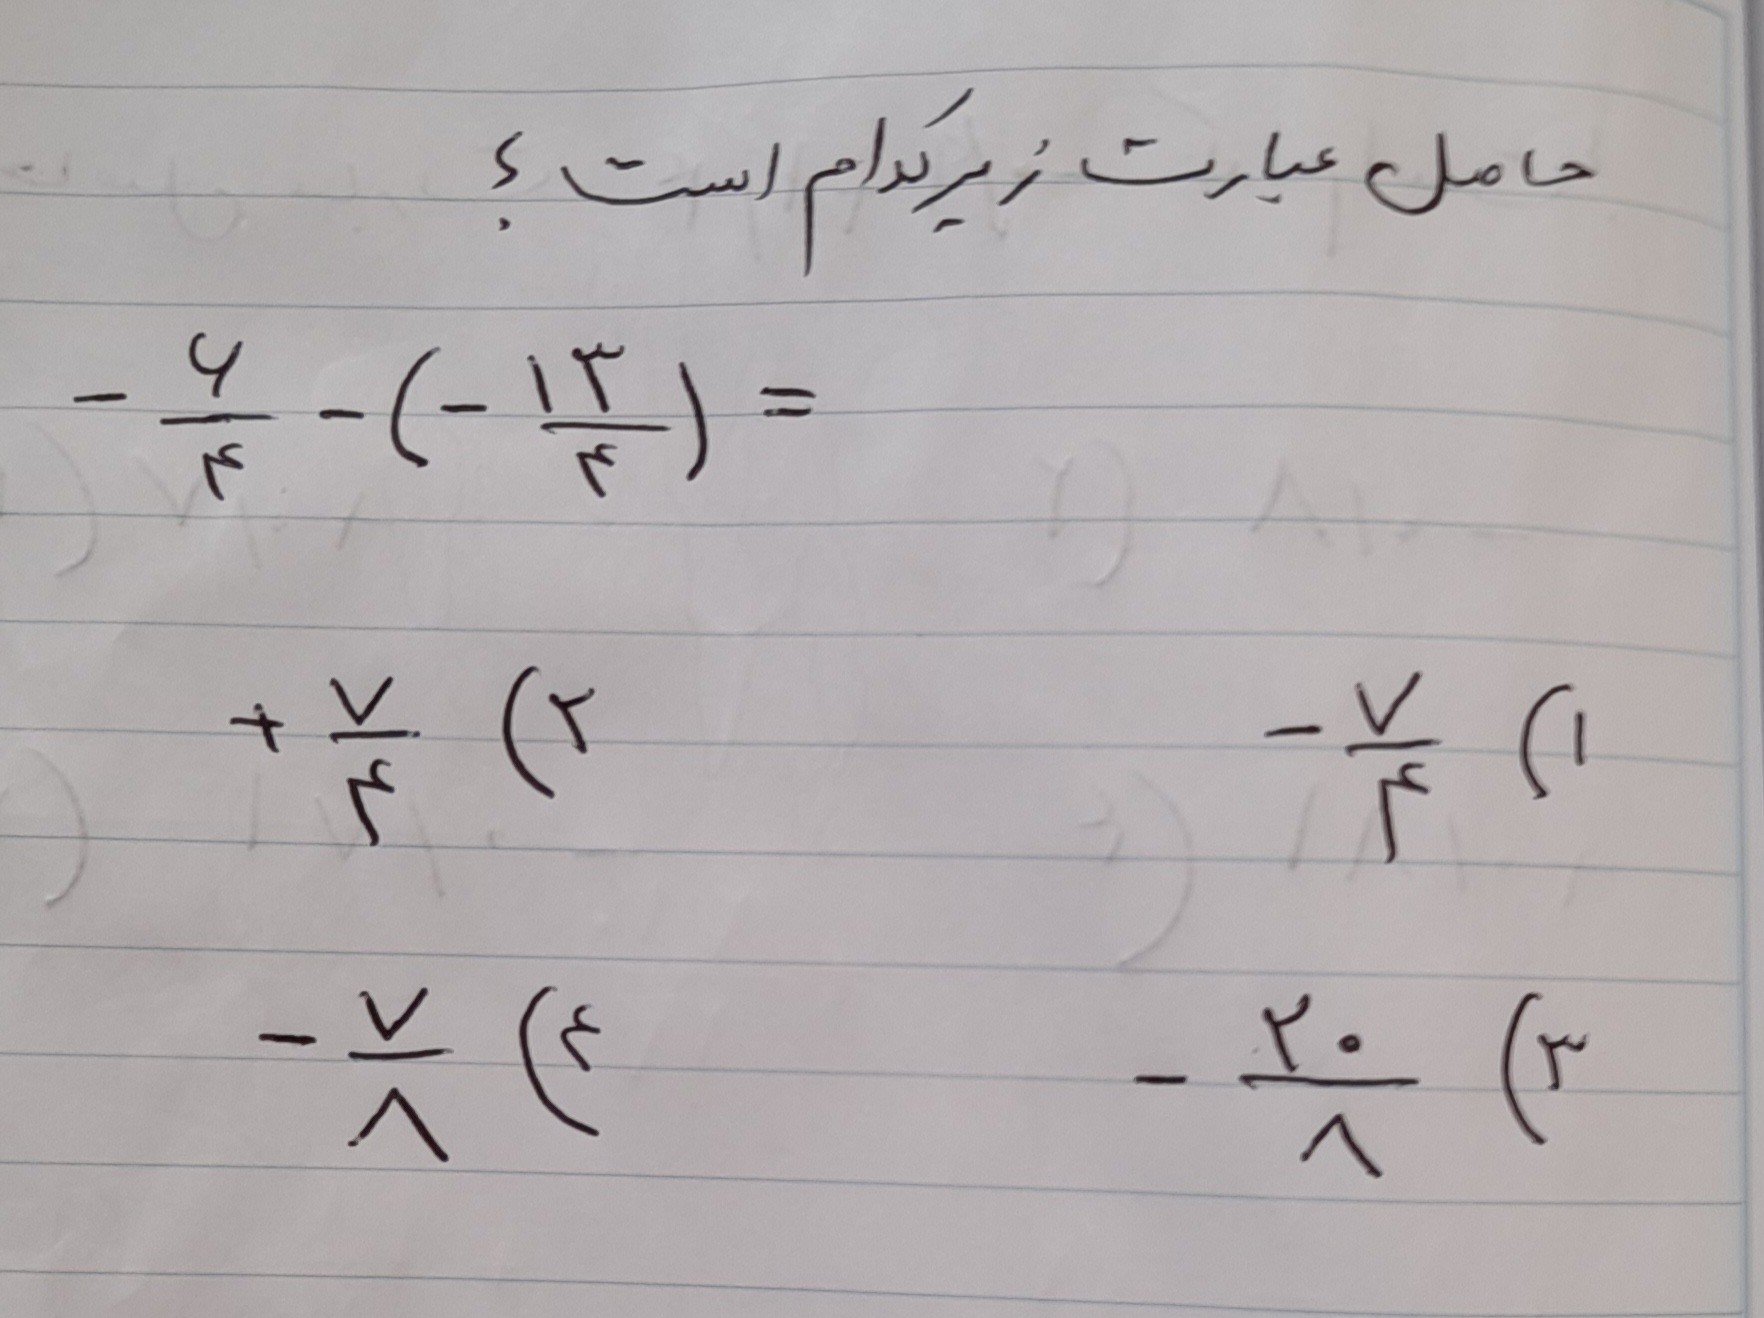 حاصل عبارت زیر کدام است ؟
- ۶/۴ - (- ۱۳/۴) =
۱) - ۷/۴ ۲) + ۷/۴
۳) - ۲۰/۸ ۴) - ۷/۸